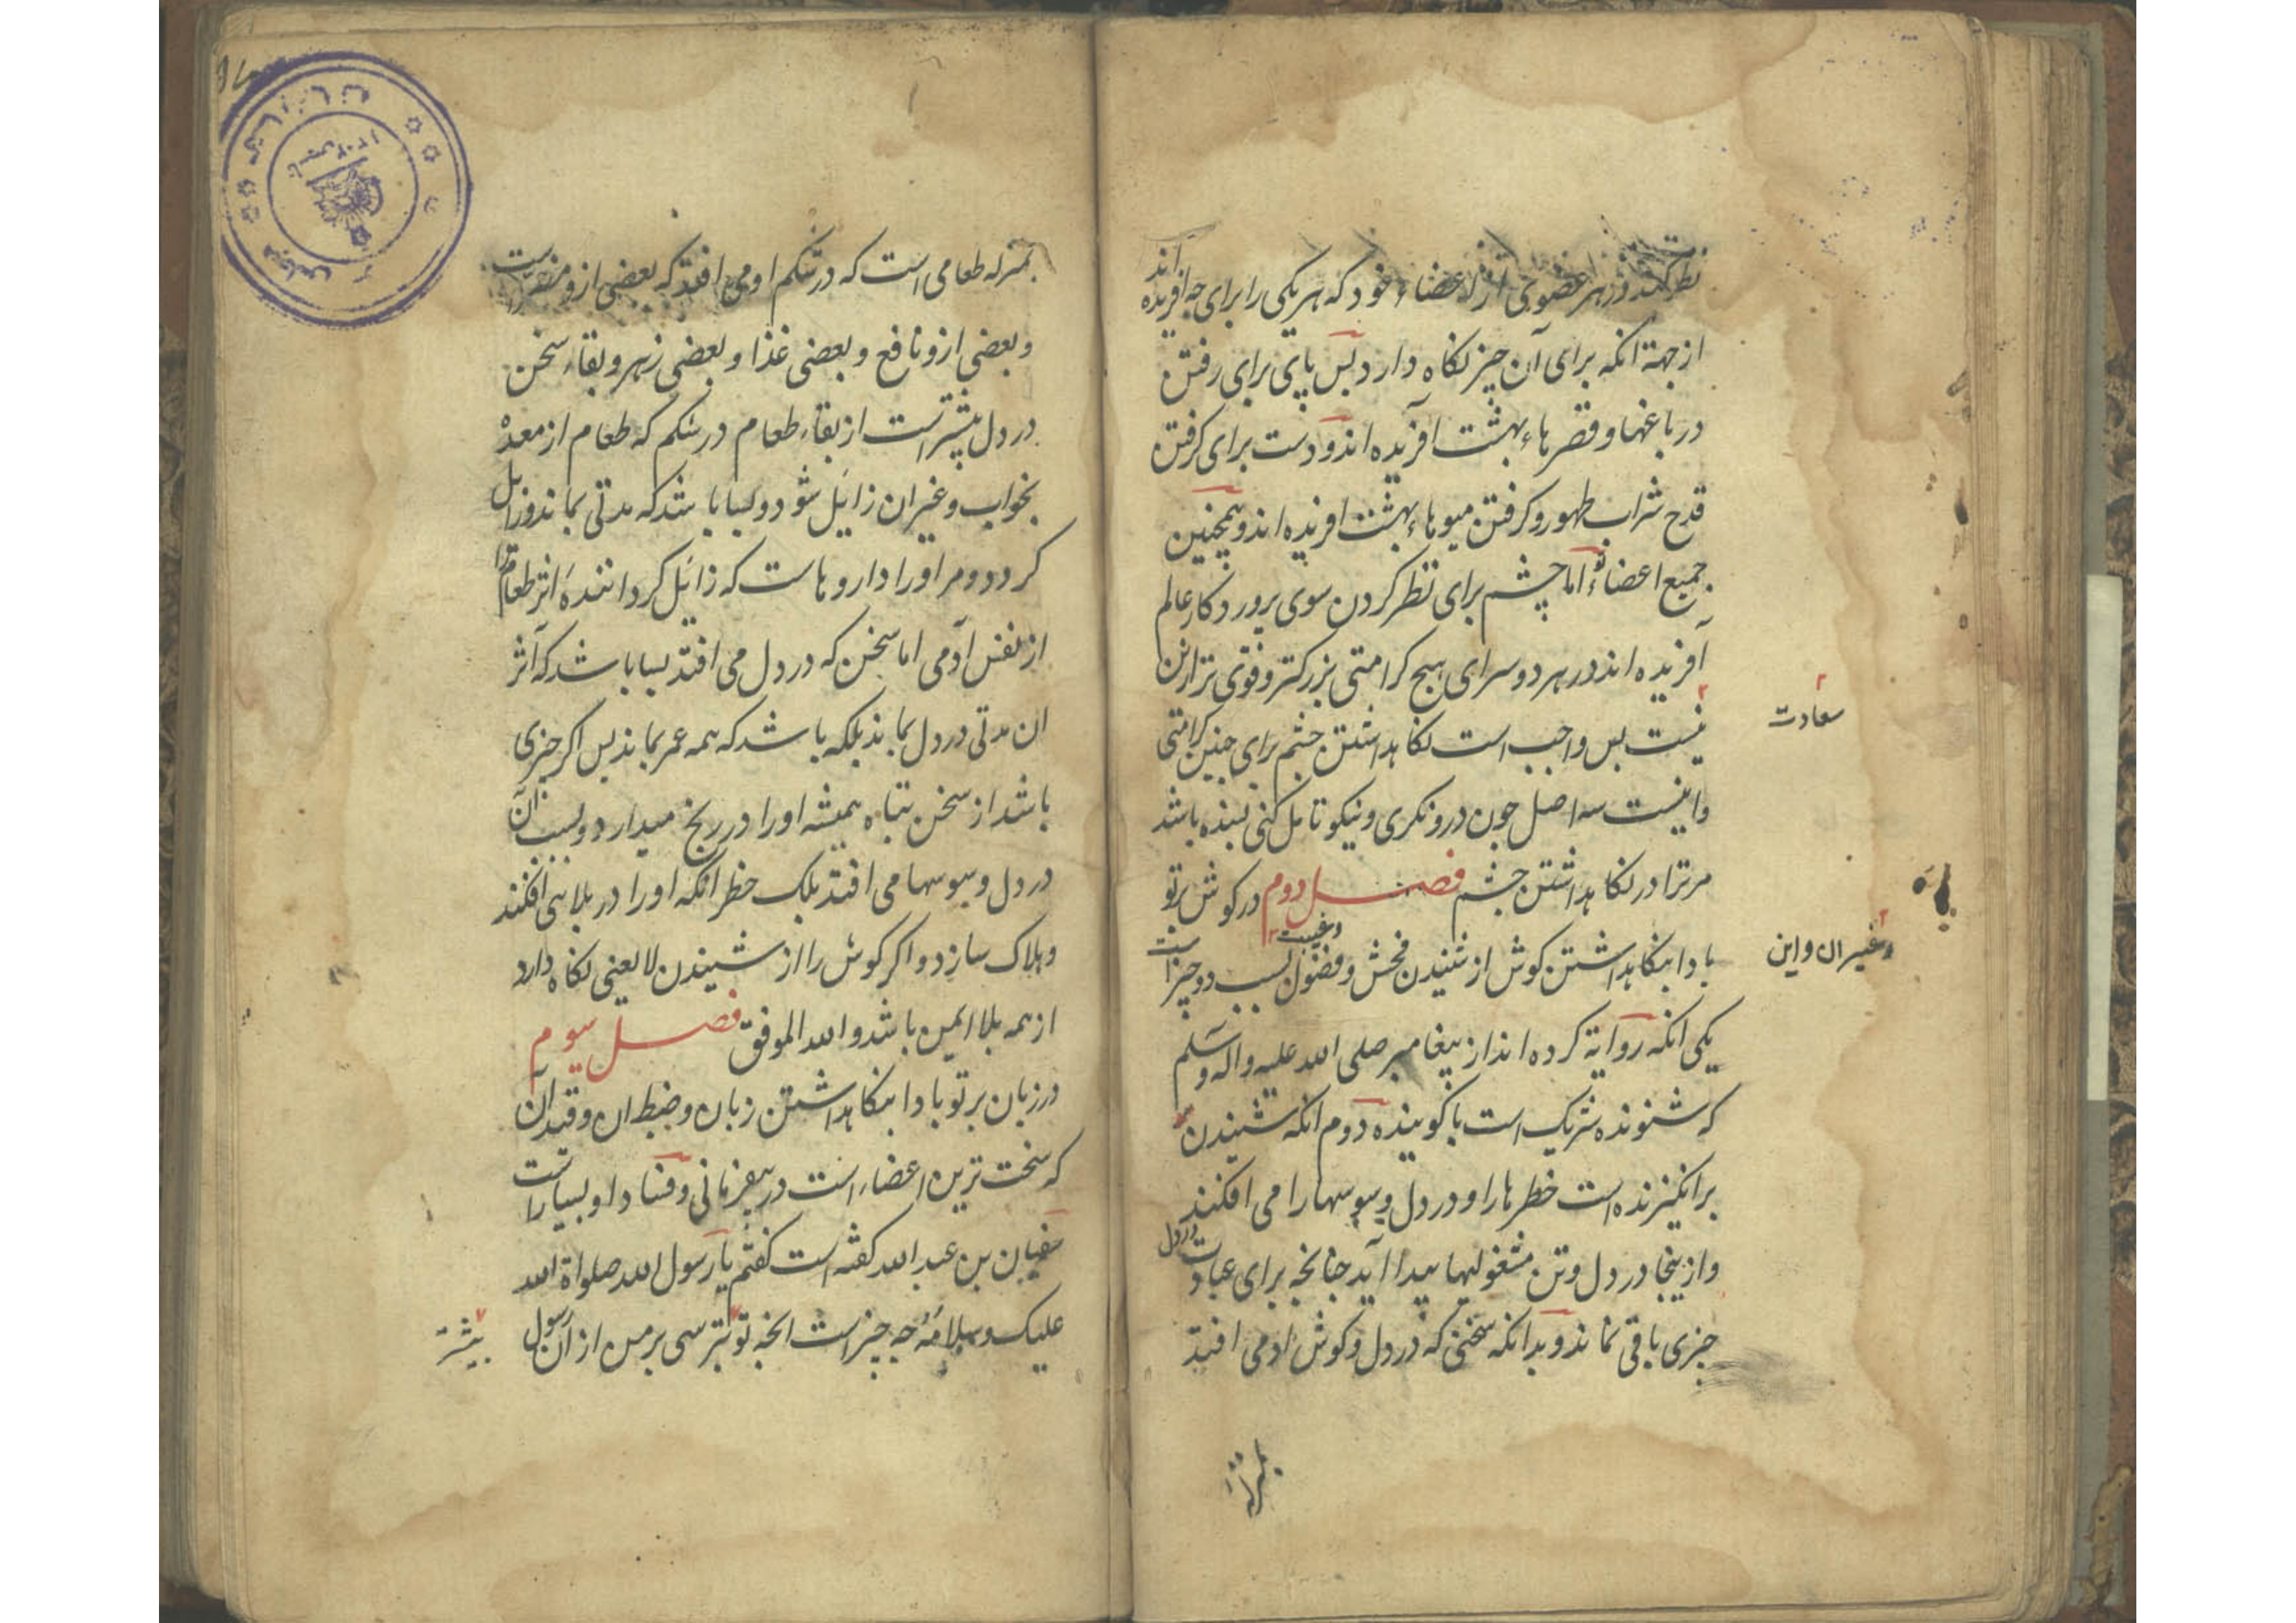 نظر کند در هر عضوی از اعضاء خود که هر یکی را برای چه آفریده اند
از جهة آنکه برای آن چیز نکاه دارد بس پای برای رفتن
در باغها و قصرهاء بهشت آفریده اند و دست برای کرفتن
قدح شراب طهور و کرفتن میوهاء بهشت افریده اند و همچنین
جمیع اعضاء اما چشم برای نظر کردن سوی پروردکار عالم
آفریده اند در هر دو سرای هیچ کرامتی بزرکتر و قوی تر ازین
سعادت
نیست بس واجب است نکاهداشتن چشم برای چنین کرامتی
و اینست سه اصل چون درو نکری و نیکو تامل کنی بسنده باشد
مر ترا در نکاهداشتن چشم فصل دوم در کوش بر تو
وغیبت
وغیر ان و این
بادا بنکاهداشتن کوش از شنیدن فحش و فضول بسبب دو چیز است
یکی انکه روایة کرده اند از پیغامبر صلی الله علیه واله وسلم
که شنونده شریک است با کوینده دوم انکه شنیدن
برانکیزنده است خطرها را و در دل وسوسها را می افکند
و از ینجا در دل و تن مشغولیها پیدا آید چنانچه برای عبادت در دل
چیزی باقی نماند و بدانکه سخنی که در دل و کوش ادمی افتد
بمنزله
بمنزله طعامی است که در شکم او می افتد که بعضی ازو مضر است
و بعضی ازو نافع و بعضی غذا و بعضی زهر و بقاء سخن
در دل بیشتر است از بقاء طعام در شکم که طعام از معده
بخواب و غیر ان زایل شود و بسا باشد که مدتی بماند و زایل
کردد و مر اورا داروهاست که زایل کرداننده اثر طعام را
از نفس آدمی اما سخن که در دل می افتد بسا باشد که اثر
ان مدتی در دل بماند بلکه باشد که همه عمر بماند بس اکر چیزی
باشد از سخن تباه همیشه اورا در رنج میدارد و بسبب آن
در دل وسوسها می افتد بلک خطر انکه اورا در بلائی افکند
و هلاک سازد و اکر کوش را از شنیدن لا یعنی نکاه دارد
از همه بلا ایمن باشد و الله الموفق فصل سیوم
در زبان بر تو بادا بنکاهداشتن زبان و ضبط ان و قید آن
که سخت ترین اعضاء است در بیفرمانی و فساد او بسیار است
سفیان بن عبد الله کفته است کفتم یا رسول الله صلواة الله
علیک و سلامه چه چیز است انچه تو بترسی بر من از آن رسول
بیشتر